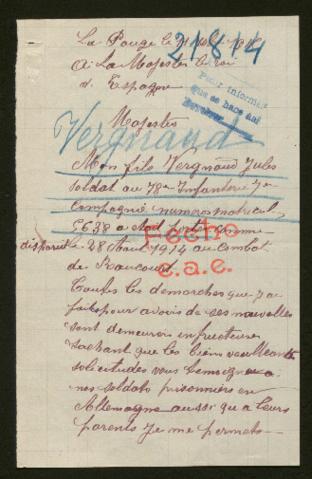 La Rouge le
21814
A Sa Majesté le roi
d'Espagne
Pour informer
que se hace así
Majesté
Vergnaud
Mon fils Vergnaud Jules
soldat au 78e Infanterie 7e
Compagnie numeros matricul
5638 a été porté comme
disparut le 28 Aout 1914 au combat
de Raucourt
Fecho
e.a.e.
Toutes les démarches que j'ai
faites pour avoir de ses nouvelles
sont demeurés infructueuses
sachant que les bienveillante
solicitudes vous temoignez a
nos soldats prisonniers en
Allemagne aussi qu a leurs
parents je me permets